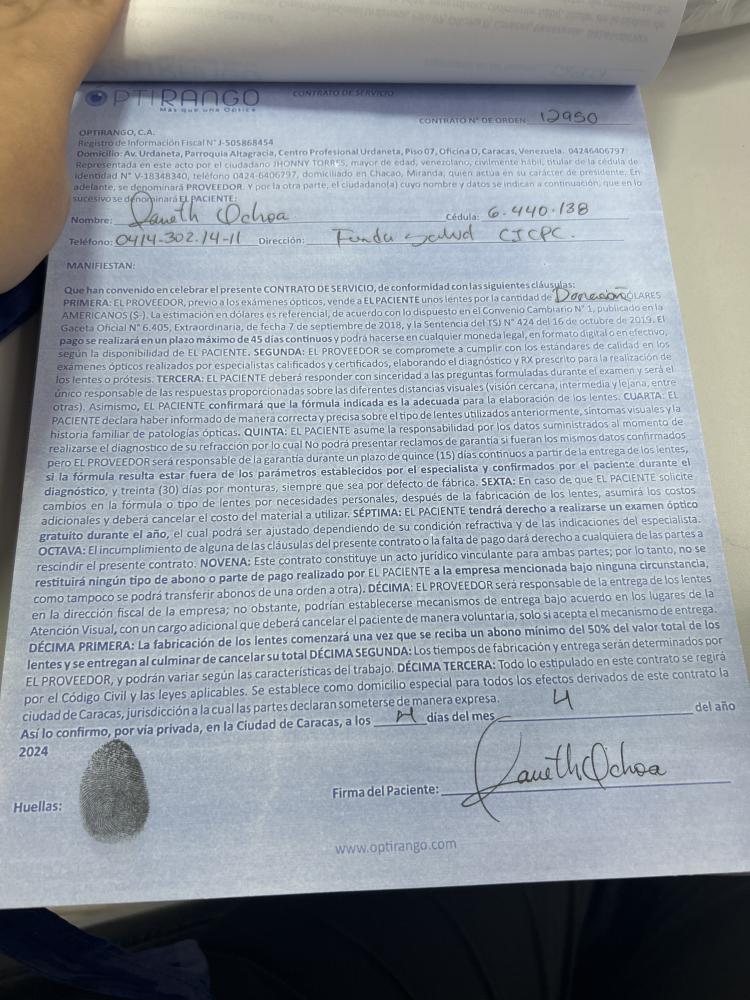 OPTIRANGO
Más que una Óptica
CONTRATO DE SERVICIO
CONTRATO N° DE ORDEN: 12950
OPTIRANGO, C.A.
Registro de Información Fiscal N° J-505868454
Domicilio: Av. Urdaneta, Parroquia Altagracia, Centro Profesional Urdaneta, Piso 07, Oficina D, Caracas, Venezuela. 04246406797
Representada en este acto por el ciudadano JHONNY TORRES, mayor de edad, venezolano, civilmente hábil, titular de la cédula de
identidad N° V-18348340, teléfono 0424-6406797, domiciliado en Chacao, Miranda, quien actúa en su carácter de presidente. En
adelante, se denominará PROVEEDOR. Y por la otra parte, el ciudadano(a) cuyo nombre y datos se indican a continuación, que en lo
sucesivo se denominará EL PACIENTE:
Nombre: Janeth Ochoa Cédula: 6.440.138
Teléfono: 0414-302.14-11 Dirección: Funda Salud CICPC.
MANIFIESTAN:
Que han convenido en celebrar el presente CONTRATO DE SERVICIO, de conformidad con las siguientes cláusulas:
PRIMERA: EL PROVEEDOR, previo a los exámenes ópticos, vende a EL PACIENTE unos lentes por la cantidad de Donación DÓLARES
AMERICANOS ($-). La estimación en dólares es referencial, de acuerdo con lo dispuesto en el Convenio Cambiario N° 1, publicado en la
Gaceta Oficial N° 6.405, Extraordinaria, de fecha 7 de septiembre de 2018, y la Sentencia del TSJ N° 424 del 16 de octubre de 2019. El
pago se realizará en un plazo máximo de 45 días continuos y podrá hacerse en cualquier moneda legal, en formato digital o en efectivo,
según la disponibilidad de EL PACIENTE. SEGUNDA: EL PROVEEDOR se compromete a cumplir con los estándares de calidad en los
exámenes ópticos realizados por especialistas calificados y certificados, elaborando el diagnóstico y RX prescrito para la realización de
los lentes o prótesis. TERCERA: EL PACIENTE deberá responder con sinceridad a las preguntas formuladas durante el examen y será el
único responsable de las respuestas proporcionadas sobre las diferentes distancias visuales (visión cercana, intermedia y lejana, entre
otras). Asimismo, EL PACIENTE confirmará que la fórmula indicada es la adecuada para la elaboración de los lentes. CUARTA: EL
PACIENTE declara haber informado de manera correcta y precisa sobre el tipo de lentes utilizados anteriormente, síntomas visuales y la
historia familiar de patologías ópticas. QUINTA: EL PACIENTE asume la responsabilidad por los datos suministrados al momento de
realizarse el diagnostico de su refracción por lo cual No podrá presentar reclamos de garantía si fueran los mismos datos confirmados
pero EL PROVEEDOR será responsable de la garantía durante un plazo de quince (15) días continuos a partir de la entrega de los lentes,
si la fórmula resulta estar fuera de los parámetros establecidos por el especialista y confirmados por el paciente durante el
diagnóstico, y treinta (30) días por monturas, siempre que sea por defecto de fábrica. SEXTA: En caso de que EL PACIENTE solicite
cambios en la fórmula o tipo de lentes por necesidades personales, después de la fabricación de los lentes, asumirá los costos
adicionales y deberá cancelar el costo del material a utilizar. SÉPTIMA: EL PACIENTE tendrá derecho a realizarse un examen óptico
gratuito durante el año, el cual podrá ser ajustado dependiendo de su condición refractiva y de las indicaciones del especialista.
OCTAVA: El incumplimiento de alguna de las cláusulas del presente contrato o la falta de pago dará derecho a cualquiera de las partes a
rescindir el presente contrato. NOVENA: Este contrato constituye un acto jurídico vinculante para ambas partes; por lo tanto, no se
restituirá ningún tipo de abono o parte de pago realizado por EL PACIENTE a la empresa mencionada bajo ninguna circunstancia,
como tampoco se podrá transferir abonos de una orden a otra). DÉCIMA: EL PROVEEDOR será responsable de la entrega de los lentes
en la dirección fiscal de la empresa; no obstante, podrían establecerse mecanismos de entrega bajo acuerdo en los lugares de la
Atención Visual, con un cargo adicional que deberá cancelar el paciente de manera voluntaria, solo si acepta el mecanismo de entrega.
DÉCIMA PRIMERA: La fabricación de los lentes comenzará una vez que se reciba un abono mínimo del 50% del valor total de los
lentes y se entregan al culminar de cancelar su total DÉCIMA SEGUNDA: Los tiempos de fabricación y entrega serán determinados por
EL PROVEEDOR, y podrán variar según las características del trabajo. DÉCIMA TERCERA: Todo lo estipulado en este contrato se regirá
por el Código Civil y las leyes aplicables. Se establece como domicilio especial para todos los efectos derivados de este contrato la
ciudad de Caracas, jurisdicción a la cual las partes declaran someterse de manera expresa.
Así lo confirmo, por vía privada, en la Ciudad de Caracas, a los días del mes 4 del año
2024
Huellas:
Firma del Paciente: Janeth Ochoa
www.optirango.com